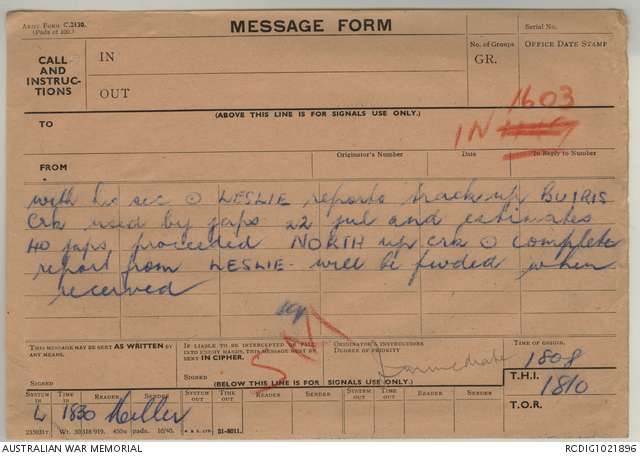 ARMY FORM C.2130.
(Pads of 100.)
MESSAGE FORM
Serial No.
CALL
AND
INSTRUC-
TIONS
IN
OUT
No. of Groups
GR.
OFFICE DATE STAMP
(ABOVE THIS LINE IS FOR SIGNALS USE ONLY.)
1603
TO
IN
FROM
Originator's Number
Date
In Reply to Number
with his sec ⊙ LESLIE reports track up BUIRIS
Crk used by japs 22 jul and estimates
40 japs proceeded NORTH up crk ⊙ complete
report from LESLIE. will be fwded when
received
THIS MESSAGE MAY BE SENT AS WRITTEN BY
ANY MEANS.
IF LIABLE TO BE INTERCEPTED OR FALL
INTO ENEMY HANDS, THIS MESSAGE MUST BE
SENT IN CIPHER.
ORIGINATOR'S INSTRUCTIONS
DEGREE OF PRIORITY
Immediate
TIME OF ORIGIN.
1808
SIGNED
SIGNED
(BELOW THIS LINE IS FOR SIGNALS USE ONLY.)
T.H.I.
1810
T.O.R.
SYSTEM IN
TIME IN
READER
SENDER
SYSTEM OUT
TIME OUT
READER
SENDER
SYSTEM OUT
TIME OUT
READER
SENDER
L 1830
AUSTRALIAN WAR MEMORIAL
RCDIG1021896